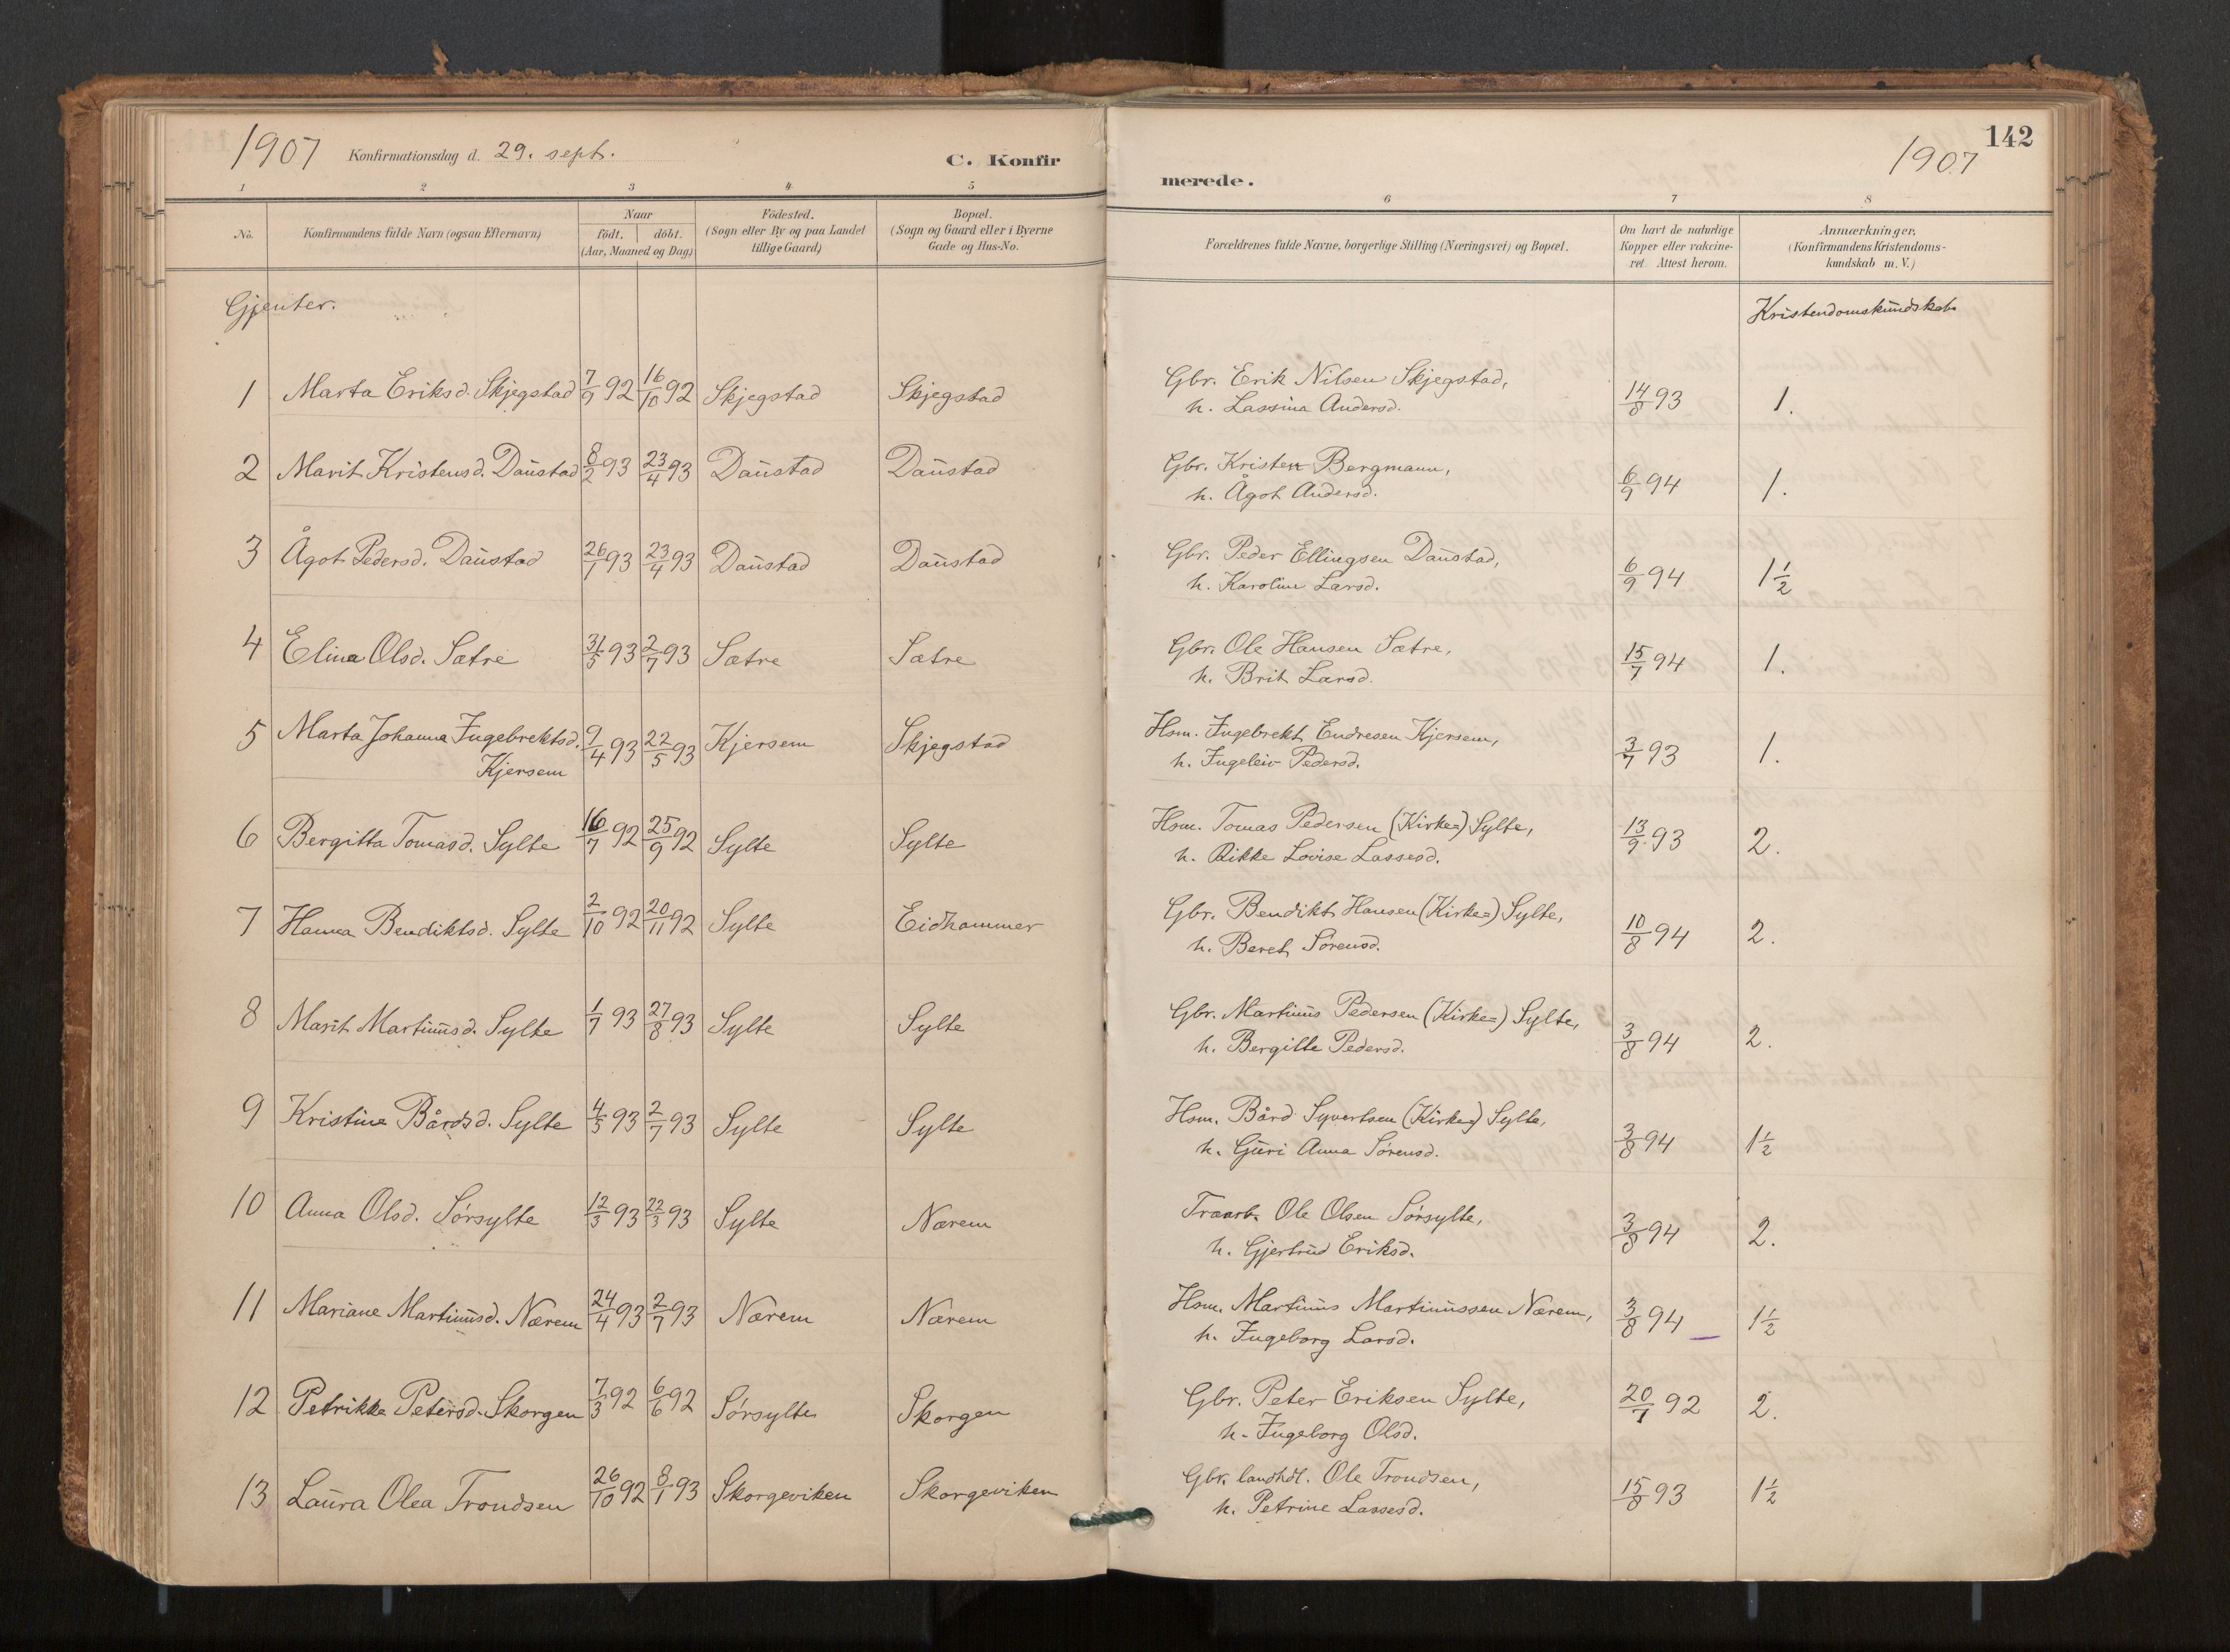 1907 Konfirmationsdag d. 29. sept. C. Konfir
merede. 1907 142
1 2 3 4 5 6 7 8
No. Konfirmandens fulde Navn (ogsaa Efternavn) Naar født, døbt. (Aar, Maaned og Dag) Födested. (Sogn eller By og paa Landet tillige Gaard) Bopæl. (Sogn og Gaard eller i Byerne Gade og Hus-No. Forældrenes fulde Navne, borgerlige Stilling (Næringsvei) og Bopæl. Om havt de naturlige Kopper eller vakcineret. Attest herom. Anmærkninger, (Konfirmandens Kristendomskundskab m. V.)
Gjenter. Kristendomskundskab
1 Marta Eriksd. Skjegstad 7/9 92 16/10 92 Skjegstad Skjegstad Gbr. Erik Nilsen Skjegstad, 14/8 93 1.
h. Lassina Andersd.
2 Marit Kristensd. Daustad 8/2 93 23/4 93 Daustad Daustad Gbr. Kristen Bergmann, 6/9 94 1.
h. Ågot Andersd.
3 Ågot Pedersd. Daustad 26/1 93 23/4 93 Daustad Daustad Gbr. Peder Ellingsen Daustad, 6/9 94 1 1/2
h. Karoline Larsd.
4 Elina Olsd. Sætre 31/5 93 2/7 93 Sætre Sætre Gbr. Ole Hansen Sætre, 15/7 94 1.
h. Brit Larsd.
5 Marta Johanna Ingebrektsd. 9/4 93 22/5 93 Kjersem Skjegstad Hsm. Ingebrekt Endresen Kjersem, 3/7 93 1.
Kjersem h. Ingeleiv Pedersd.
6 Bergitta Tomasd. Sylte 16/7 92 25/9 92 Sylte Sylte Hsm. Tomas Pedersen (Kirke=) Sylte, 13/9 93 2.
h. Rikke Lovise Lassesd.
7 Hanna Bendiktsd. Sylte 2/10 92 20/11 92 Sylte Eidhammer Gbr. Bendikt Hansen (Kirke=) Sylte, 10/8 94 2.
h. Beret Sørensd.
8 Marit Martinusd. Sylte 1/7 93 27/8 93 Sylte Sylte Gbr. Martinus Pedersen (Kirke=) Sylte, 3/8 94 2.
h. Bergitte Pedersd.
9 Kristine Bårdsd. Sylte 4/5 93 2/7 93 Sylte Sylte Hsm. Bård Syvertsen (Kirke=) Sylte, 3/8 94 1 1/2
h. Guri Anna Sørensd.
10 Anna Olsd. Sørsylte 12/3 93 22/3 93 Sylte Nærem Traarb. Ole Olsen Sørsylte, 3/8 94 2.
h. Gjertrud Eriksd.
11 Mariane Martinusd. Nærem 24/4 93 2/7 93 Nærem Nærem Hsm. Martinus Martinussen Nærem, 3/8 94 1 1/2
h. Ingeborg Larsd.
12 Petrikke Petersd. Skorgen 7/3 92 6/6 92 Sørsylte Skorgen Gbr. Peter Eriksen Sylte, 20/7 92 2.
h. Ingeborg Olsd.
13 Laura Olea Trondsen 26/10 92 8/1 93 Skorgeviken Skorgeviken Gbr. landhdl. Ole Trondsen, 15/8 93 1 1/2
h. Petrine Lassesd.